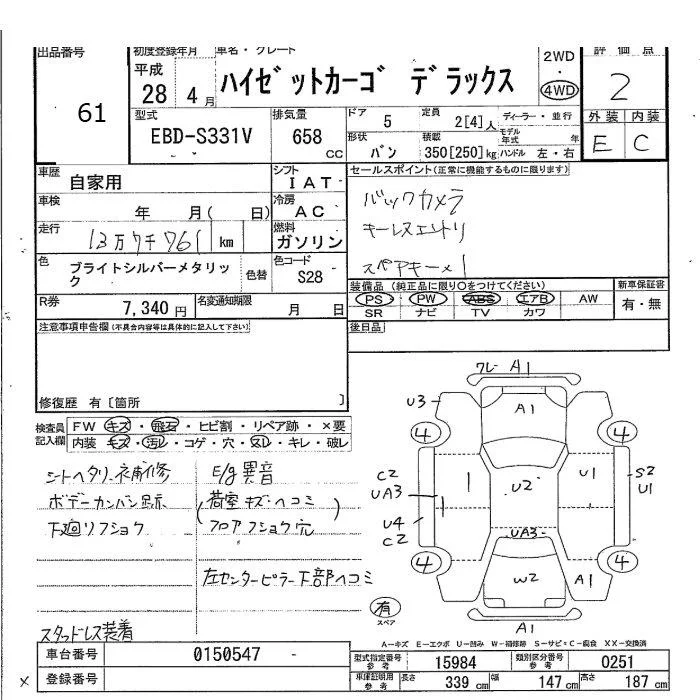 出品番号 初度登録年月 車名・グレード 2WD 評価点
61 平成 28 4月 ハイゼットカーゴ デラックス ・ 4WD 2
型式 排気量 ドア 定員 ディーラー・並行 外装 内装
EBD-S331V 658 cc 5 2[4]人 モデル年式 年 E C
形状 積載
バン 350[250]kg ハンドル 左・右
車歴 自家用 シフト IAT セールスポイント(正常に機能するものに限ります)
車検 年 月( 日) 冷房 AC バックカメラ
走行 13万7千761 km 燃料 ガソリン キーレスエントリ
色 ブライトシルバーメタリック 色替 色コード S28 スペアキー×1
装備品 (純正品に限り○をつけてください) 新車保証書
R券 7,340円 名変通知期限 月 日 PS PW ABS エアB AW 有・無
SR ナビ TV カワ
注意事項申告欄(不具合内容等は具体的に記入して下さい) 後日品
修復歴 有〔箇所 〕
検査員記入欄 FW キズ・飛石・ヒビ割・リペア跡・×要
内装 キズ・汚レ・コゲ・穴・スレ・キレ・破レ
シートヘタリ、補修 E/g異音
ボデーカンバン跡 (荷室キズヘコミ
下廻リフショク フロアフショク穴)
左センターピラー下部ヘコミ
スタッドレス装着
ワレ A1
U3 A1
4 4
C2 UA3 U2 U1 S2 U1
U4 C2 UA3
4 4
W2 A1
有 スペア
A1
A-キズ E-エクボ U-凹み W-補修跡 S-サビ・C-腐食 XX-交換済
車台番号 0150547 - 型式指定番号 参考 15984 類別区分番号 参考 0251
× 登録番号 車庫証明用 参考 長さ 339 cm 幅 147 cm 高さ 187 cm